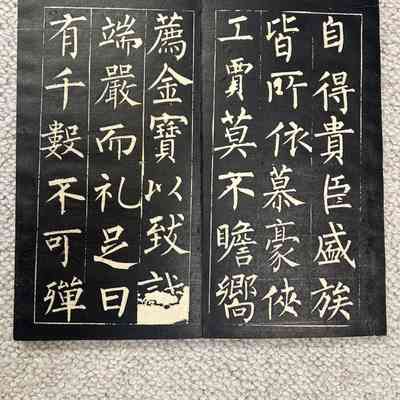 自得貴臣盛族
皆所依慕豪俠
工賈莫不瞻嚮
薦金寶以致誠
端嚴而礼足日
有千數不可殫